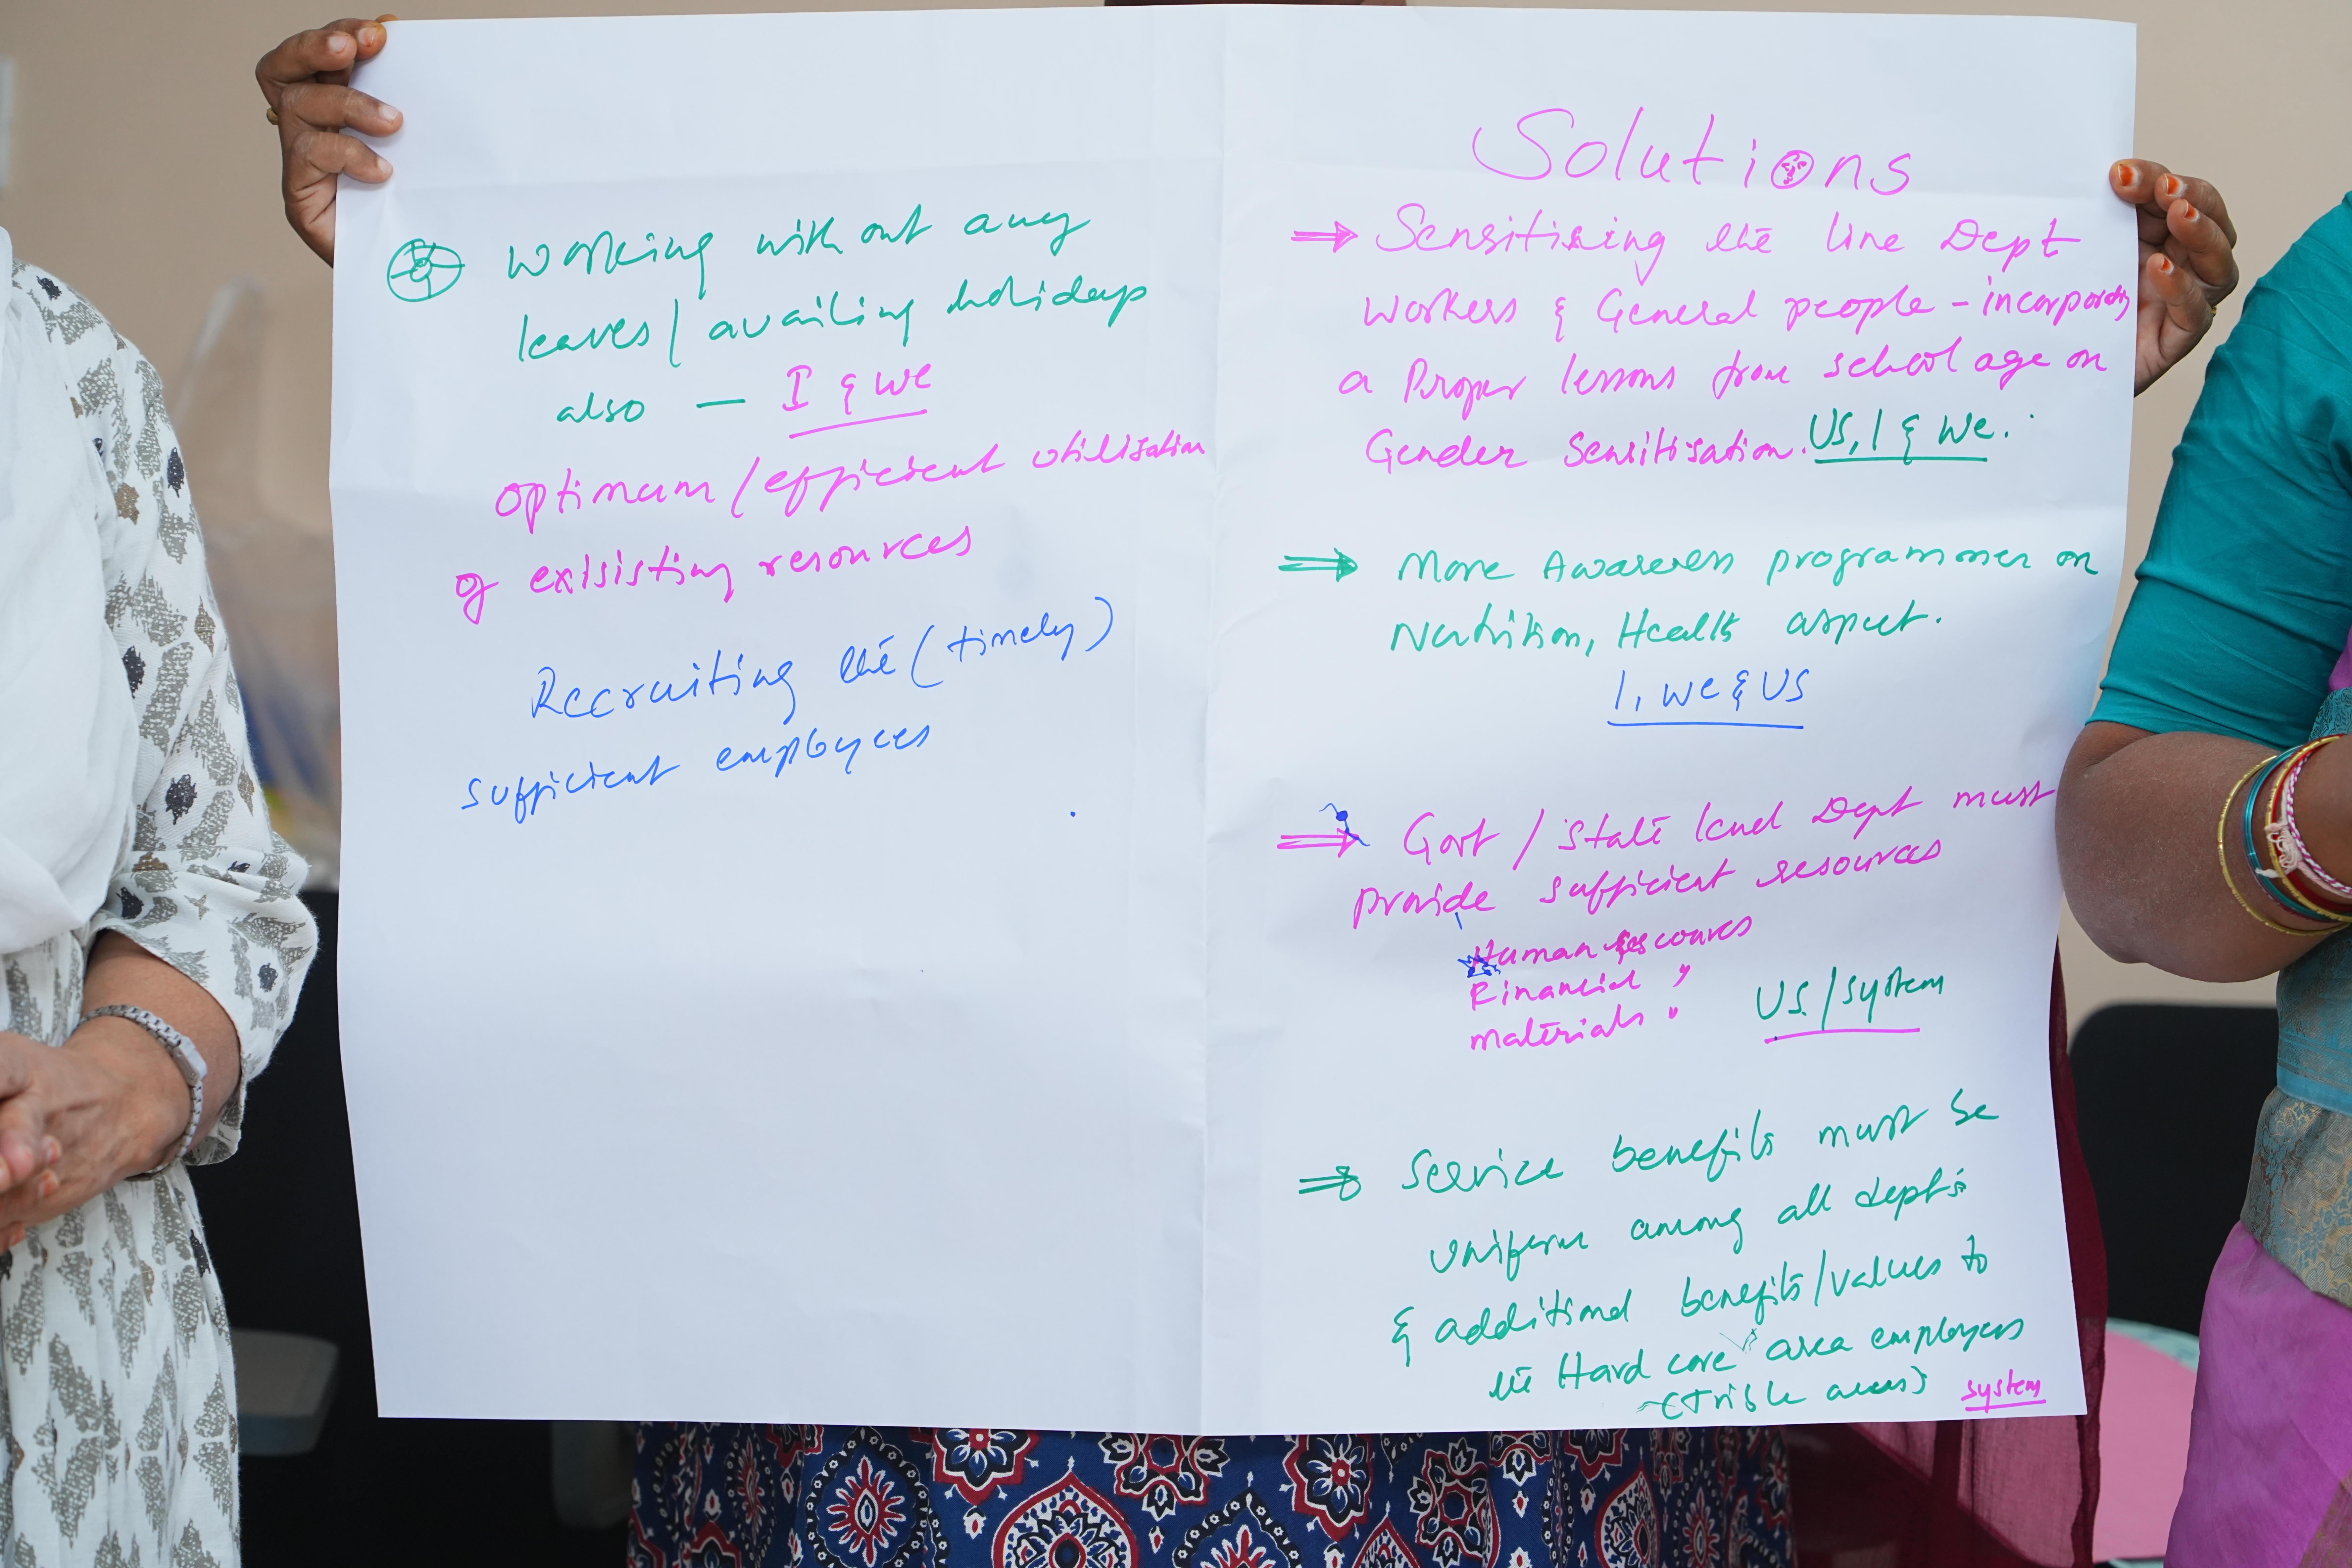 working with out any
leaves / availing holidays
also — I & we
optimum / efficient utilisation
of exisisting resources
Recruiting the (timely)
sufficient employees
Solutions
⇒ Sensitising the line Dept
workers & General people - incorporating
a Proper lessons from school age on
Gender Sensitisation. US, I & We.
⇒ More Awareness programmes on
Nutrition, Health aspect.
I, we & US
⇒ Govt / State level Dept must
provide sufficient resources
Human Resources
Financial "
materials "
US / System
⇒ Service benefits must be
uniform among all dept's
& additional benefits / values to
the Hard core area employees
(Trible areas)
System